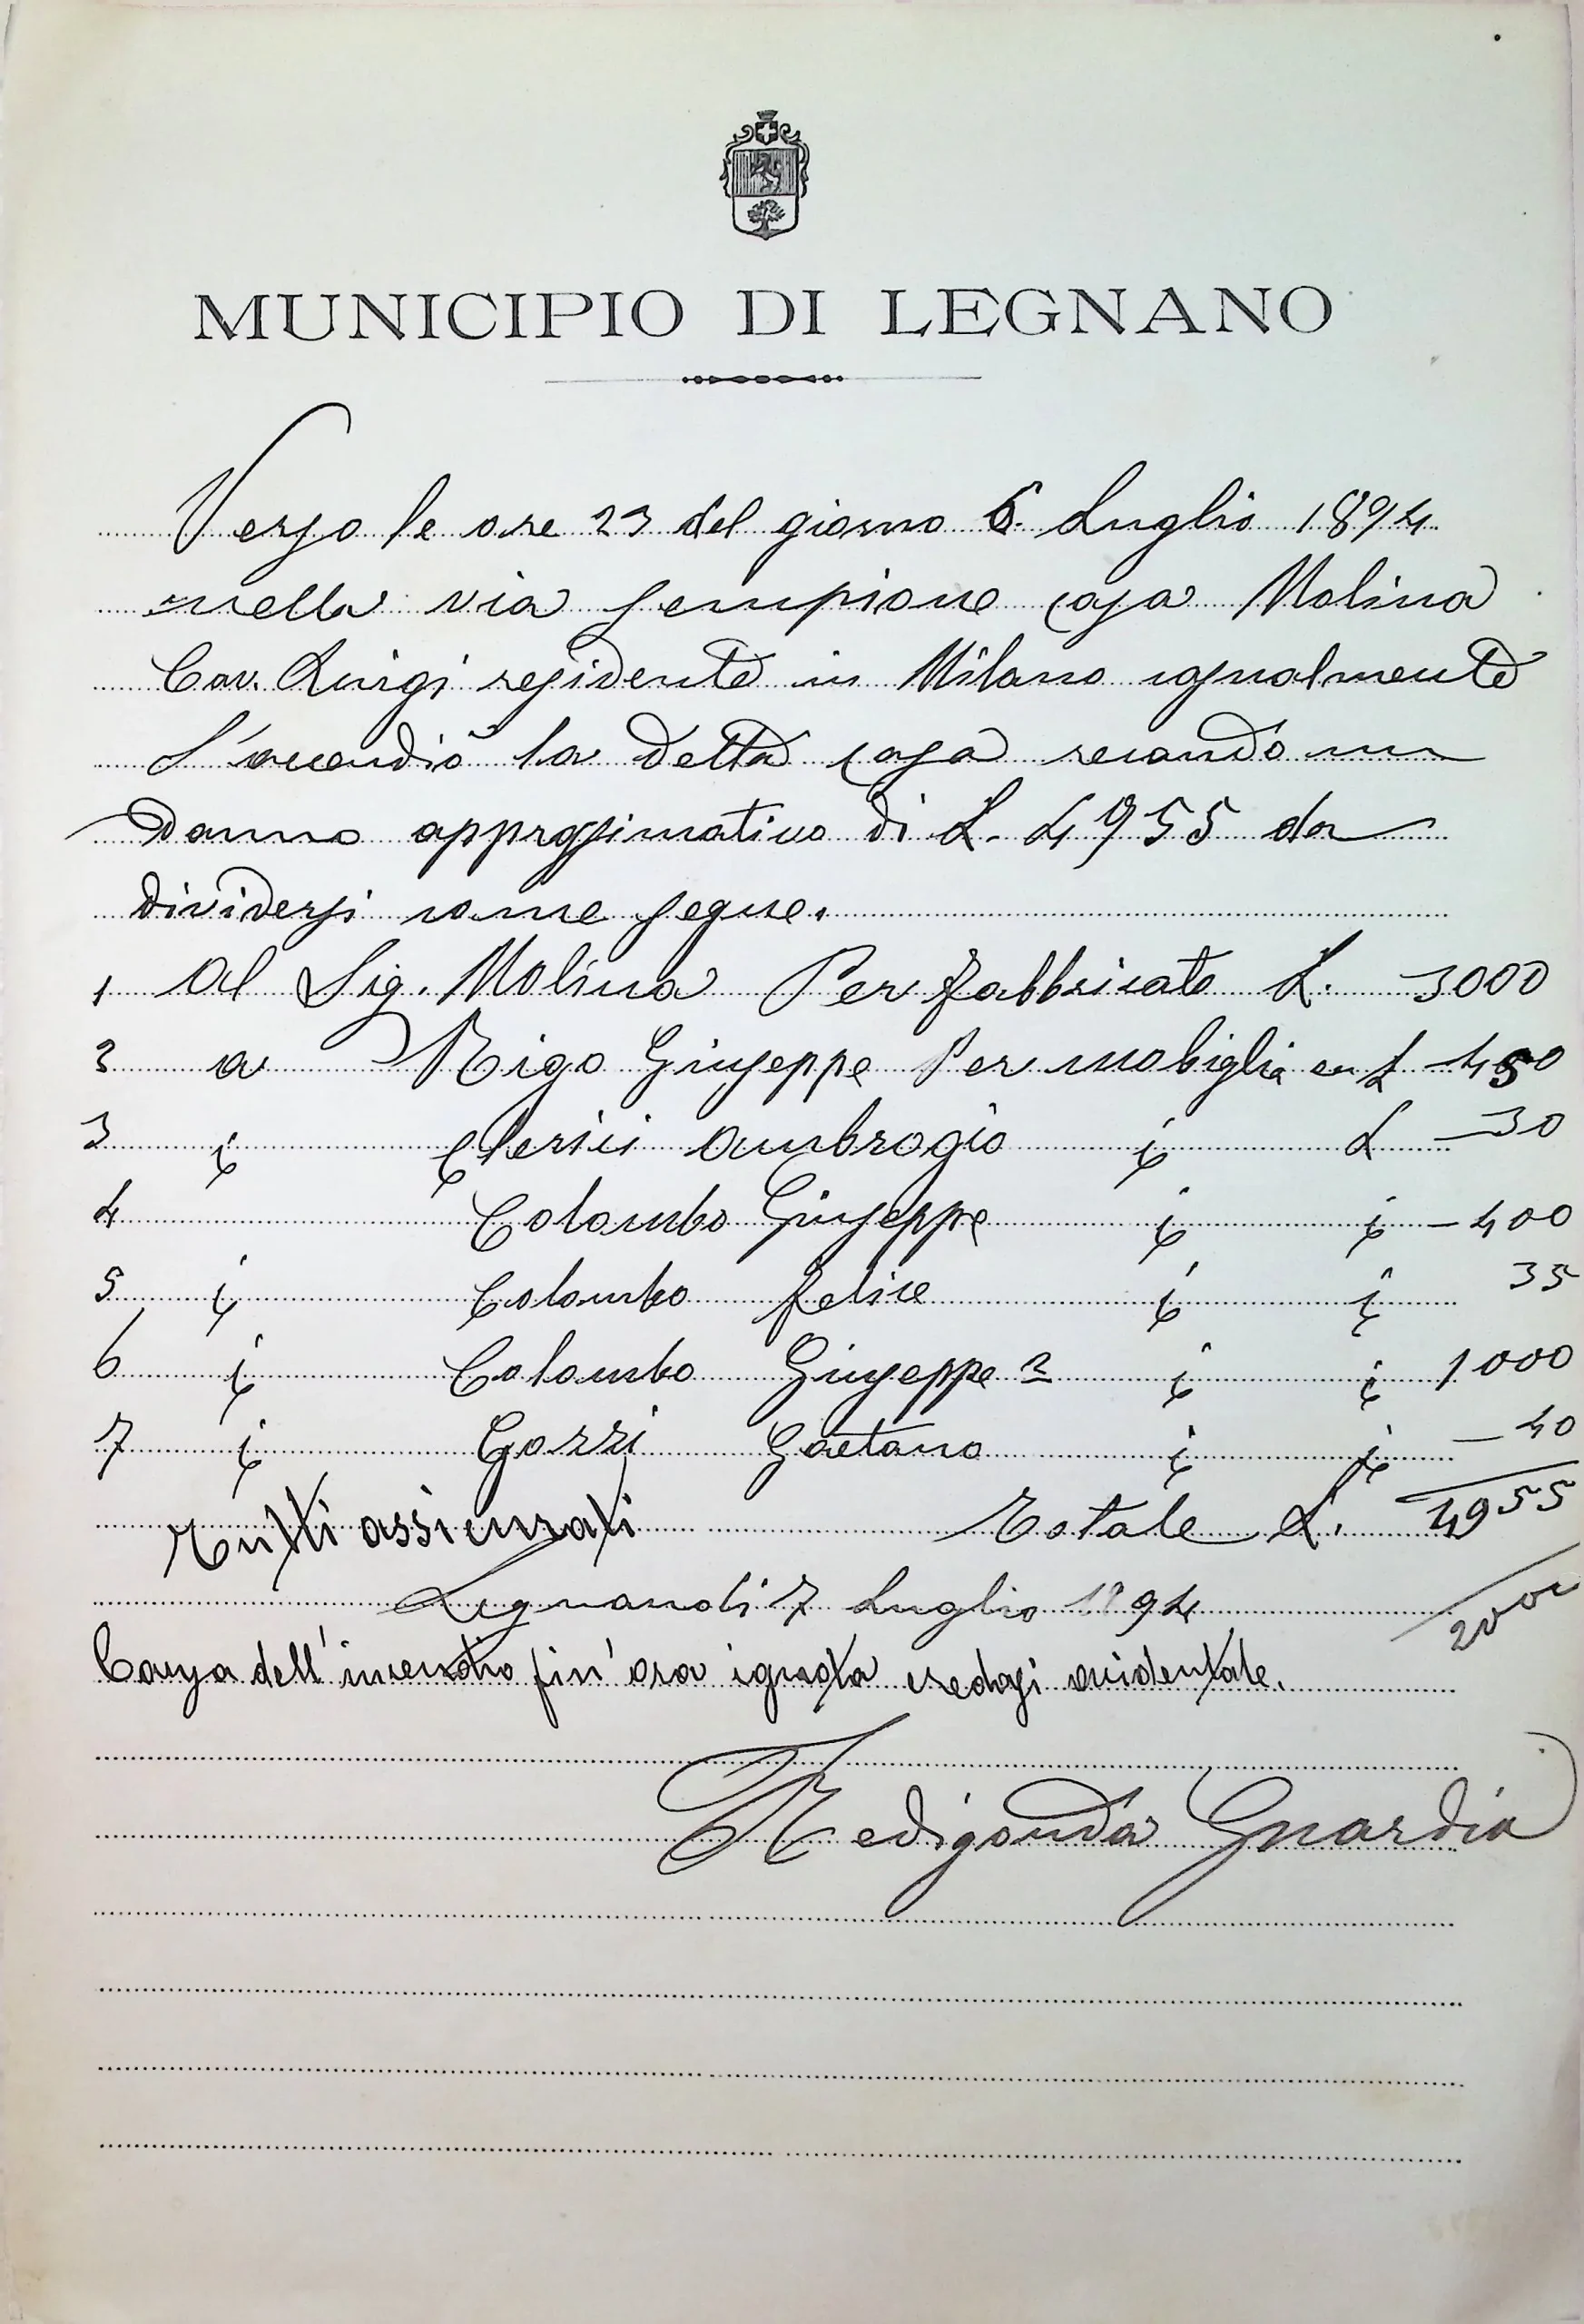 MUNICIPIO DI LEGNANO
Verso le ore 23 del giorno 6. Luglio 1894
nella via Sempione casa Molina
Cav. Luigi residente in Milano ugualmente
S'accendiò la detta casa recando un
danno approssimativo di L. 4955 da
dividersi come segue.
1 Al Sig. Molina Per fabbricato L. 3000
2 a Rigo Giuseppe Per mobiglia L 450
3 " Clerici Ambrogio " L 30
4 Colombo Giuseppe " " 400
5 " Colombo Felice " " 35
6 " Colombo Giuseppe 2 " " 1000
7 " Gozzi Gaetano " " 40
Tutti assicurati Totale L. 4955
Legnano li 7 Luglio 1894
Causa dell'incendio fin'ora ignota credasi accidentale.
Redigonda Guardia